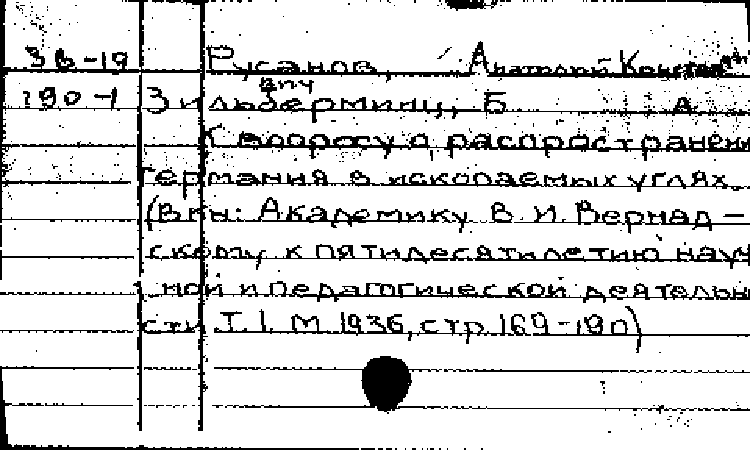 3в-19 Русанов, Анатолий Констан
190-1 Зильберминц, Б А
К вопросу о распространени
германия в ископаемых углях.
(В кн: Академику В. И. Вернад-
скому к пятидесятилетию науч
ной и педагогической деятельн
сти Т. I. М 1936, стр 169-190)